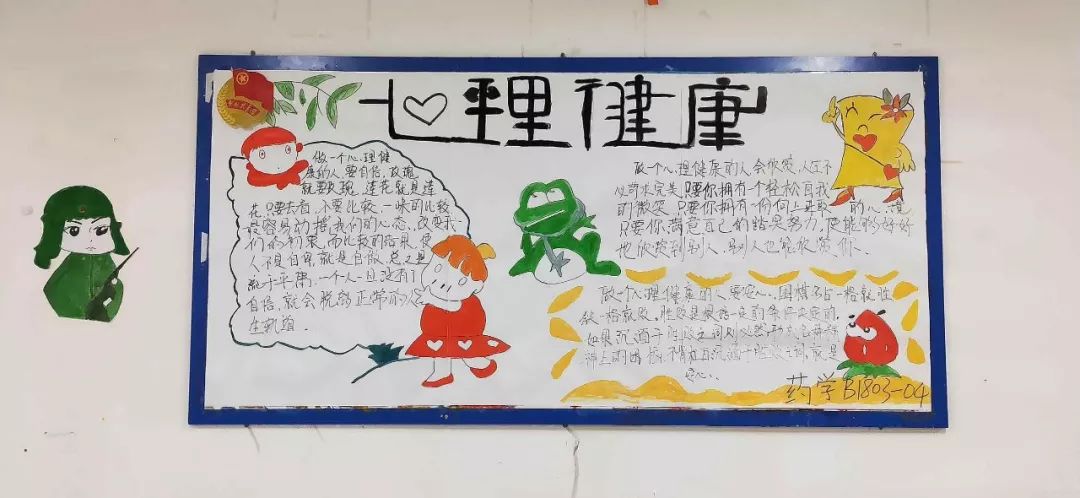 心理健康
做一个心理健
康的人要自信,玫瑰
就是玫瑰,莲花就是莲
花,只要去看,不要比较,一味的比较
最容易动摇我们的心态,改变我
们的初衷,而比较的结果,使
人不是自卑就是自傲,总之是
流于平庸,一个人一旦没有了
自信,就会脱离正常的人
生轨道.
做一个心理健康的人会欣赏,人生不
必苛求完美,只要你拥有一个轻松自我
的微笑,只要你拥有一份向上 的心境
只要你满意自己的 是努力,便能够好好
地欣赏到别人,别人也能欣赏你.
做一个心理健康的人要安心,
做一格 胜败是 一定的条件决定的,
如果沉湎于胜败之间则必然
神上的 沉湎于胜败之间,就是
安心.
药学B1803-04